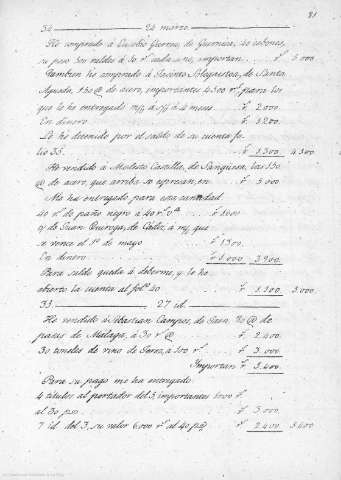 81
32 24 marzo
He comprado á Eusebio Gierna, de Guernica, 40 cebones,
su peso son neldos á 30 r.ˢ cada una, importan r.ˢ 5 000
Tambien he comprado á Jacinto de Santa
Agueda, 130 @ de acero, importantes 4 500 r.ˢ para los
que le he entregado mi á 4 meses r.ˢ 2.000
En dinero r.ˢ 1200
Le he detenido por el saldo de su cuenta fo
lio 35 r.ˢ 1.300 4 500
He vendido á Modesto Castilla, de Sangüesa, las 130
@ de acero, que arriba se espresan, en r.ˢ 5 000
Me ha entregado para esa cantidad
40 v.ˢ de paño negro á 40 r.ˢ v.ᵃ r.ˢ 1600
de Juan Quiroga, de Cádiz, á m/, que
se vence el 1º de mayo r.ˢ 1300
En dinero r.ˢ 1.000 3.900
Para saldo queda á deberme, y le he
abierto la cuenta al folº 40 r.ˢ 1.100 5.000
33 27 id.
He vendido á Sebastian Campos, de Jaen, 80 @ de
pasas de Málaga, á 30 r.ˢ @ r.ˢ 2.400
30 toneles de vino de Jerez, á 100 r.ˢ r.ˢ 3.000
Importan r.ˢ 5.400
Para su pago me ha entregado
4 titulos al portador del 5, importantes r.ˢ
al 30 p% r.ˢ 3.000
7 id. del 3, su valor 6000 r.ˢ al 40 p% r.ˢ 2.400 5.400